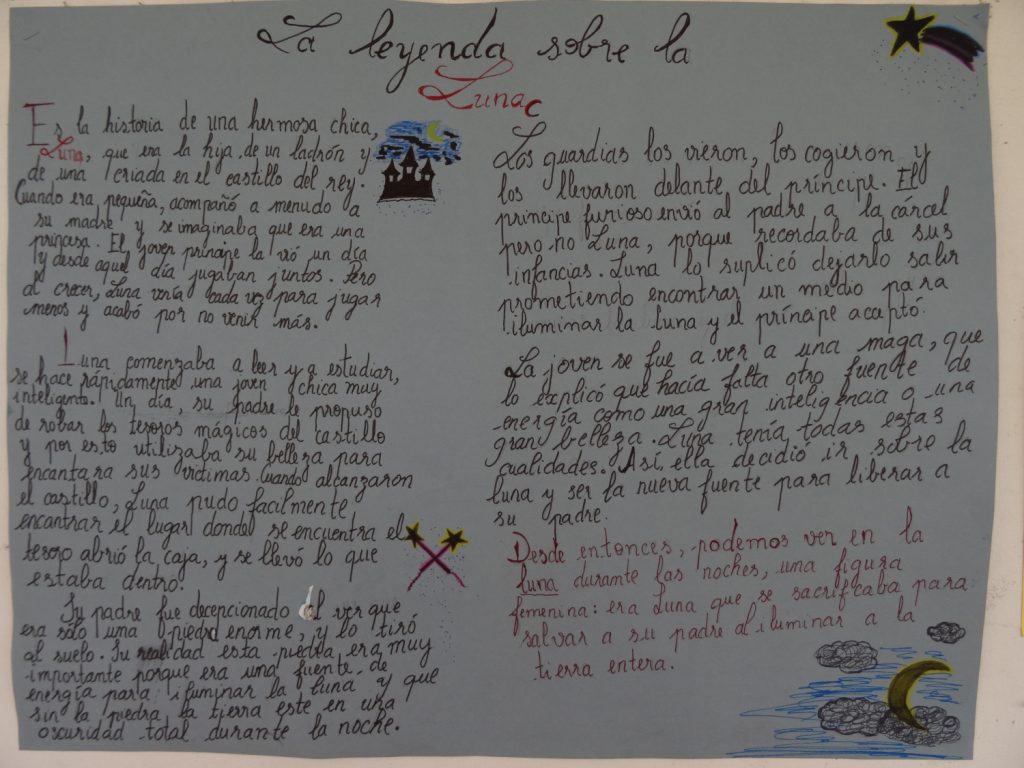 La leyenda sobre la
Luna
Es la historia de una hermosa chica,
Luna, que era la hija de un ladrón y
de una criada en el castillo del rey.
Cuando era pequeña, acompañó a menudo a
su madre y se imaginaba que era una
princesa. El joven príncipe la vió un día
y desde aquel día jugaban juntos. Pero
al crecer, Luna venía cada vez para jugar
menos y acabó por no venir más.
Luna comenzaba a leer y a estudiar,
se hace rápidamente una joven chica muy
inteligente. Un día, su padre le propuso
de robar los tesoros mágicos del castillo
y por esto utilizaba su belleza para
encantara sus victimas. Cuando alcanzaron
el castillo, Luna pudo facilmente
encontrar el lugar donde se encuentra el
tesoro abrió la caja, y se llevó lo que
estaba dentro.
Su padre fue decepcionado al ver que
era sólo una piedra enorme, y lo tiró
al suelo. Su realidad esta piedra era muy
importante porque era una fuente de
energía para iluminar la luna y que
sin la piedra la tierra este en una
oscuridad total durante la noche.
Los guardias los vieron, los cogieron y
los llevaron delante del príncipe. El
príncipe furioso envió al padre a la cárcel
pero no Luna, porque recordaba de sus
infancias. Luna lo suplicó dejarlo salir
prometiendo encontrar un medio para
iluminar la luna y el príncipe acaptó.
La joven se fue a ver a una maga, que
lo explicó que hacía falta otro fuente de
energía como una gran inteligencia o una
gran belleza. Luna tenía todas estas
cualidades. Así, ella decidió ir sobre la
luna y ser la nueva fuente para liberar a
su padre.
Desde entonces, podemos ver en la
luna durante las noches, una figura
femenina: era Luna que se sacrificaba para
salvar a su padre al iluminar a la
tierra entera.